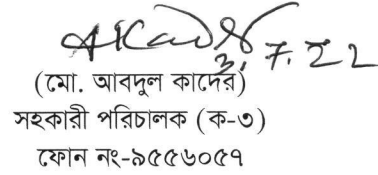 3. 7. 22
(মো. আবদুল কাদের)
সহকারী পরিচালক (ক-৩)
ফোন নং-৯৫৫৬০৫৭